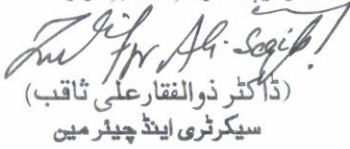 Zulfqr Ali Saqib
(ڈاکٹر ذوالفقار علی ثاقب)
سیکرٹری اینڈ چیئر مین